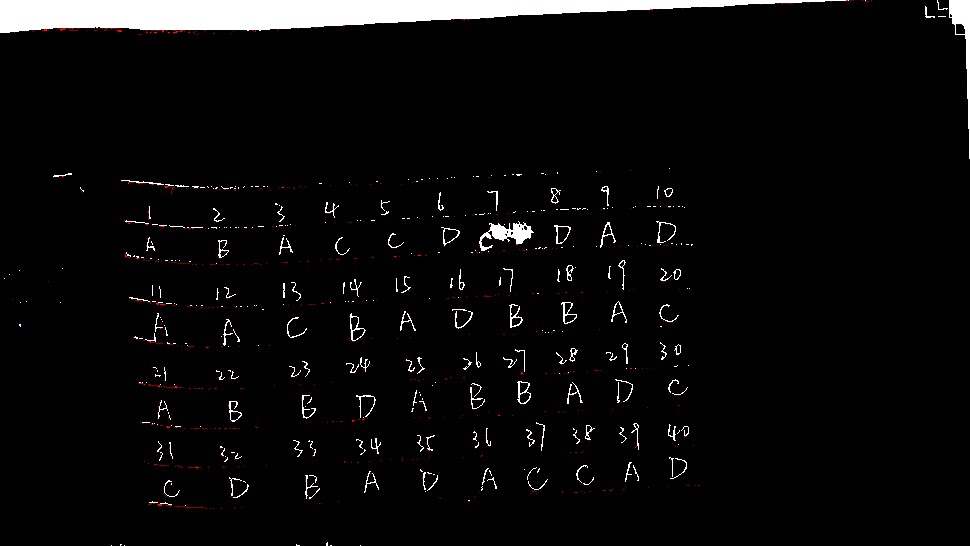 一、
1 2 3 4 5 6 7 8 9 10
A B A C C D C D A D
11 12 13 14 15 16 17 18 19 20
A A C B A D B B A C
21 22 23 24 25 26 27 28 29 30
A B B D A B B A D C
31 32 33 34 35 36 37 38 39 40
C D B A D A C C A D